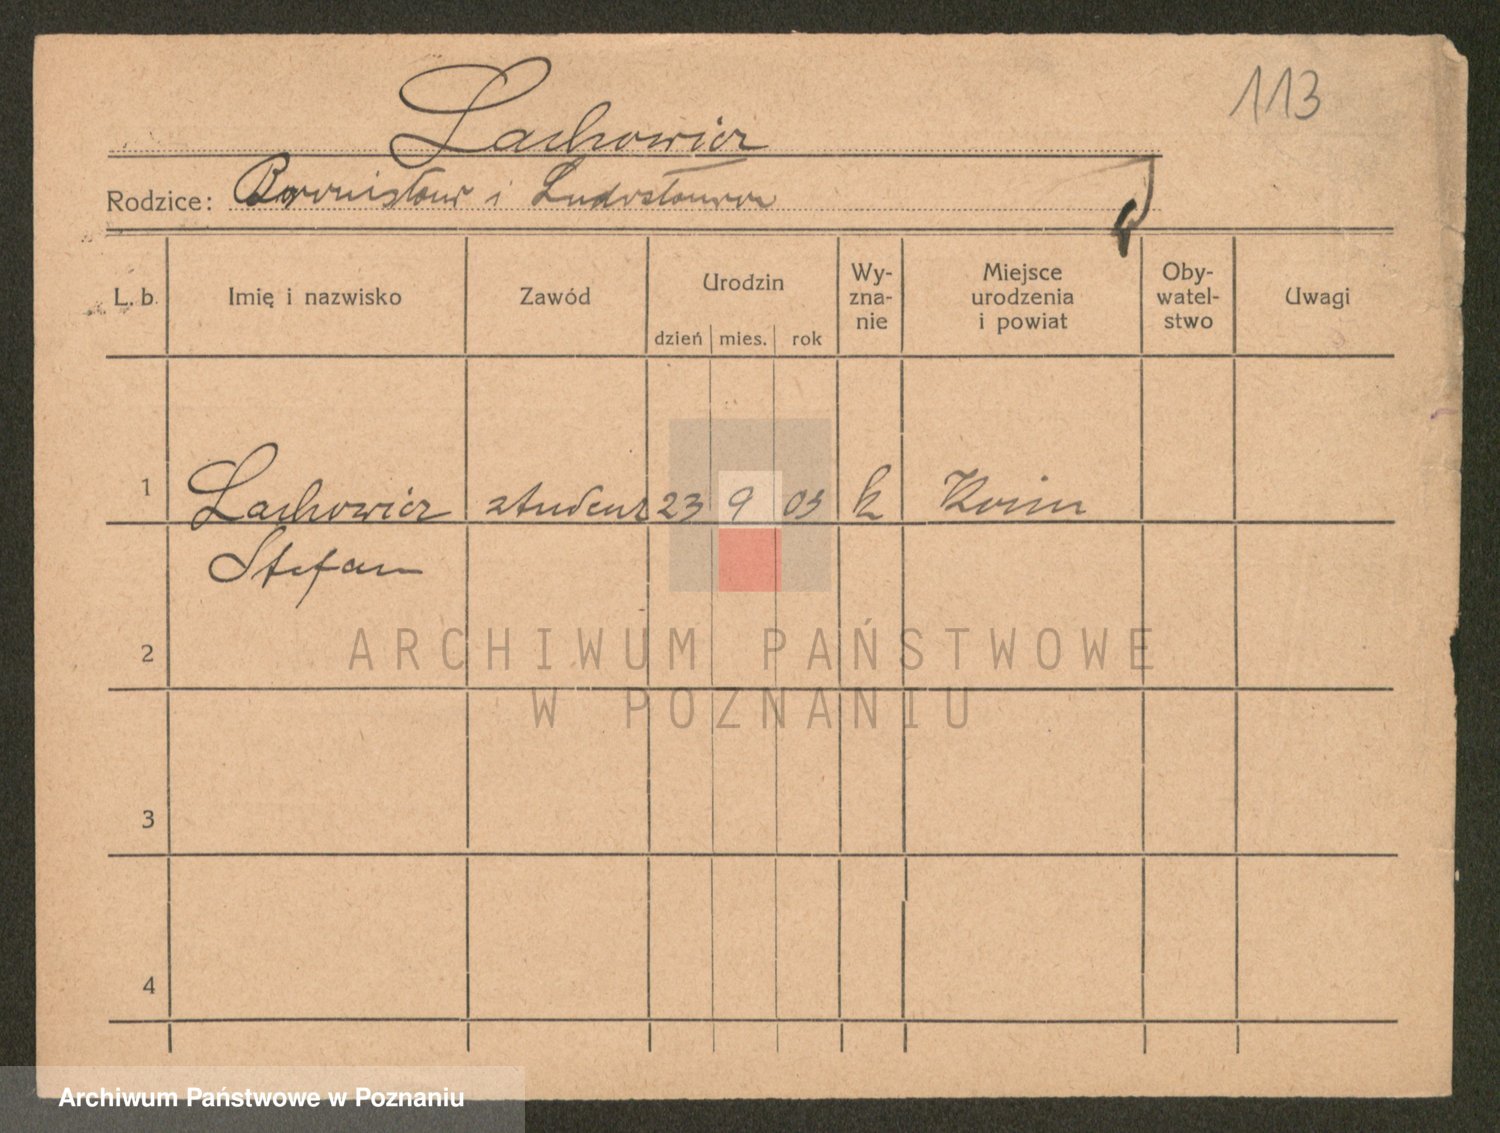 113
Lachowicz
Rodzice: Bronisław i Ludosława
L. b. Imię i nazwisko Zawód Urodzin dzień mies. rok Wy-zna-nie Miejsce urodzenia i powiat Oby-watel-stwo Uwagi
1 Lachowicz student 23 9 03 k
Stefan
2
3
4
ARCHIWUM PAŃSTWOWE
W POZNANIU
Archiwum Państwowe w Poznaniu